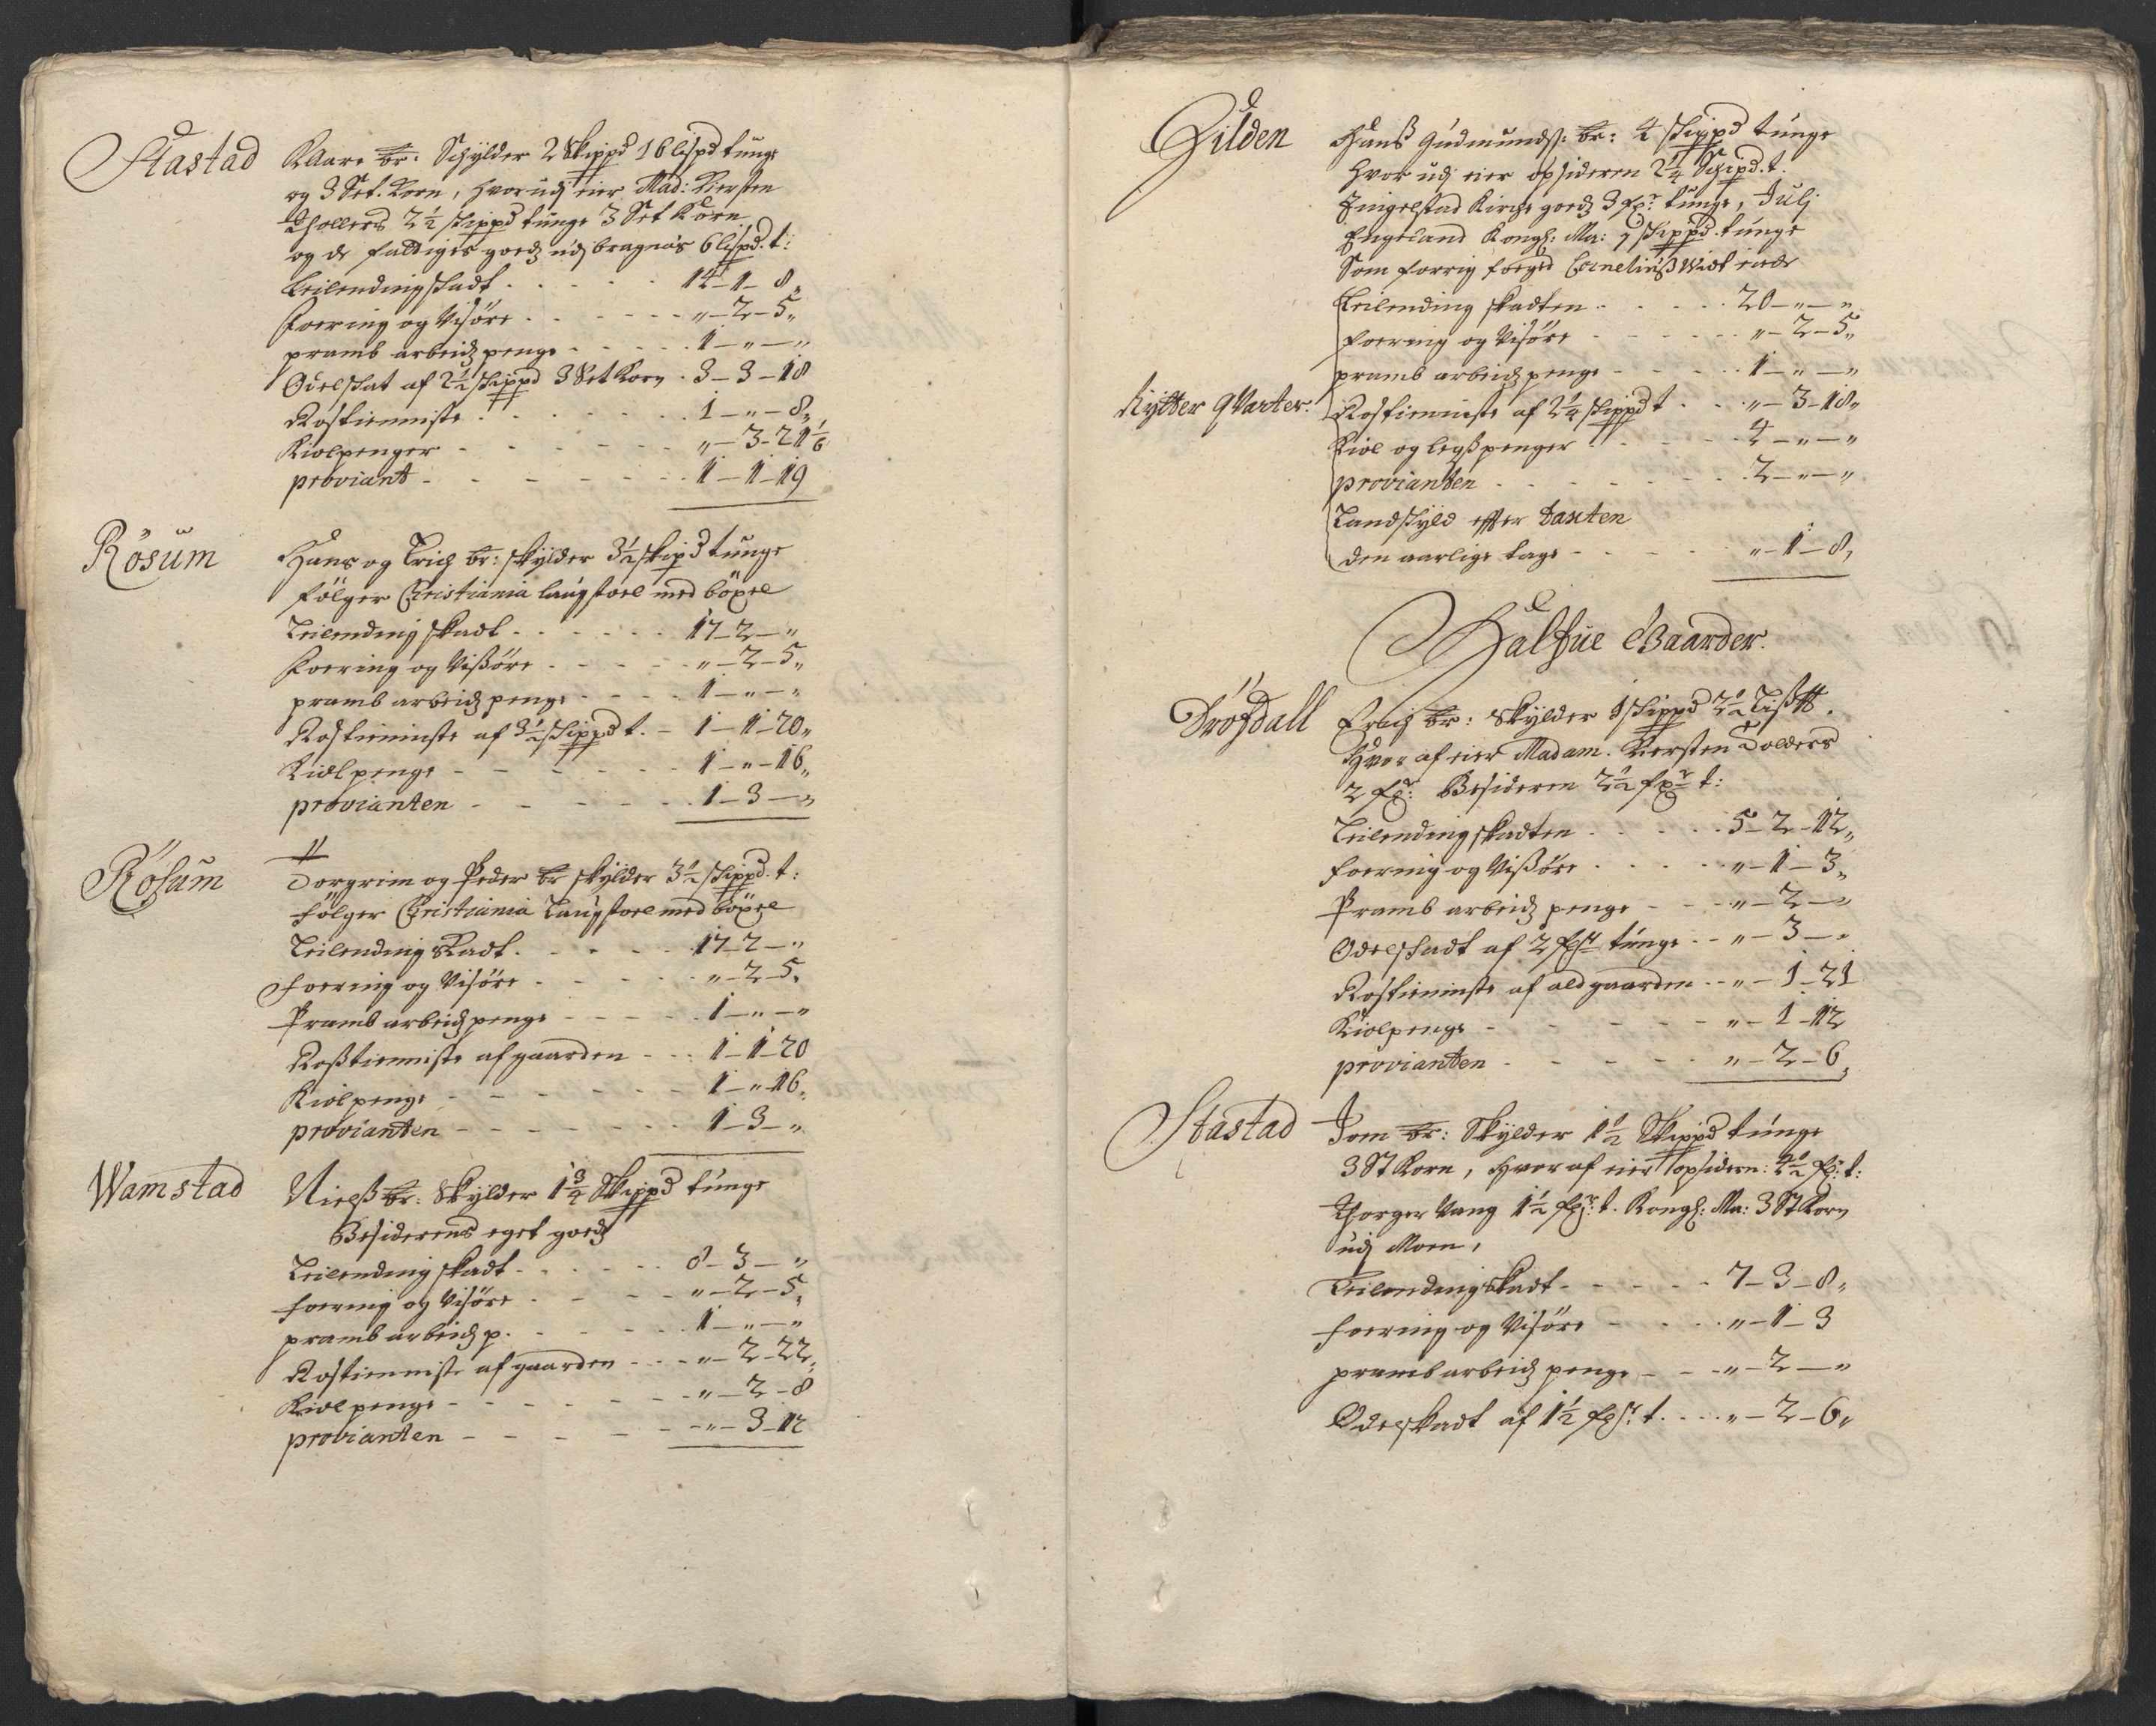 Stastad Klare br: Schylder 2 Skippd 16 lispd tunge
og 3 Set. Korn, hvor udj eier Mad: Kiersten
Thollers 2½ skippd tunge 3 Set Korn
og de fattiges goedz udj bragnæs 6 lispd. t:
Leilending skadt . . . . . 14-1-8„
Foering og Visöre . . . . . „-2-5„
pramb arbeidz penge . . . . . 1-„-„
Odelskat af 2½ skippd 3 Set Korn . 3-3-18
Rostienniste . . . . . . 1-„-8„
Kiolpenger . . . . . „-3-21⅙
proviant . . . . . . 1-1-19
Rösum Hans og Erich br: skylder 3½ skipd tunge
fölger Christiania laugstoel med böxel
Leilending skadt . . . . . 17-2-„
Foering og Vissöre . . . . . „-2-5„
pramb arbeidz penge . . . . 1-„-„
Rostienniste af 3½ skippd t. - 1-1-20„
Kiolpenge . . . . . . 1-„-16„
provianten . . . . . . 1-3-„
Rösum Torgrim og Peder br skylder 3½ skippd. t:
fölger Christiania Laugstoel med böxel
Leilending Skadt . . . . . 17-2-„
foering og Visöre . . . . . „-2-5„
Pramb arbeidz penge . . . . . 1-„-„
Rosstienniste af gaarden . . . 1-1-20
Kiolpenge . . . . . . 1-„-16„
provianten . . . . . . 1-3-„
Wamstad Nielss br: Skylder 1¾ Skippd tunge
Besiderens eget goedz
Leilending skadt . . . . . 8-3-„
foering og Visöre . . . . „-2-5„
pramb arbeidz p. . . . . . 1-„-„
Rostienniste af gaarden . . . „-2-22„
Kiolpenge . . . . . . „-2-8
provianten . . . . . . „-3-12
Gilden Hanss Gudmundss: br: 4 skippd tunge
hvor udj eier opsideren 2¼ Schipd. t.
Ingelstad Kirche goedz 3 fr. tunge, Julj
Engeland Kongl: Ma: 1 skippd. tunge
Som forrig foged Cornelius Widt eiede
Leilending skadten . . . . 20-„-„
foering og Visöre . . . . . „-2-5„
pramb arbeidz penge . . . . . 1-„-„
Rytter qvarter: Rostienniste af 2¼ skippd t . . „-3-18„
Kiol og legsspenger . . . . . 4-„-„
provianten . . . . . . 2-„-„
Landskyld effter taxten
den aarlige tage . . . . . „-1-8„
Halfue Gaarder.
Dröfdall Erich br: Skylder 1 skippd 2½ Liss℔.
Hvor af eier Madam. Kiersten Tolders
2 fr: Besideren 2½ fr t:
Leilending skadten . . . . . 5-2-12„
foering og Vissöre . . . . . „-1-3„
Pramb arbeidz penge . . . „-2-„
Odelskadt af 2 fr tunge . . „-3-„
Rostienniste af ald gaarden . . „-1-21
Kiolpenge . . . . . . „-1-12
provianten . . . . . „-2-6„
Stastad Jom br: Skylder 1½ Skippd tunge
3 St Korn, hvor af eier opsidern: 4½ fr: t:
Thorger Vang 1½ fr: t. Kongl: Ma: 3 St Korn
udj Moen,
Leilending Skadt . . . . . 7-3-8„
foering og Visöre . . . . „-1-3
pramb arbeidz penge . . . „-2-„
Odelskadt af 1½ fr: t. . . . „-2-6„